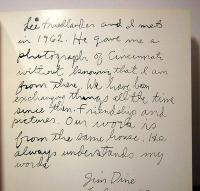 Lee Friedlander and I met
in 1962. He gave me a
photograph of Cincinnati
without knowing that I am
from there. We have been
exchanging things all the time
since then. Friendship and
pictures. Our work is
from the same house. He
always understands my
words
Jim Dine